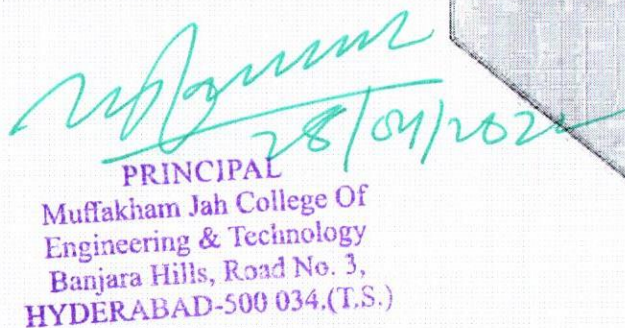 PRINCIPAL
Muffakham Jah College Of
Engineering & Technology
Banjara Hills, Road No. 3,
HYDERABAD-500 034.(T.S.)